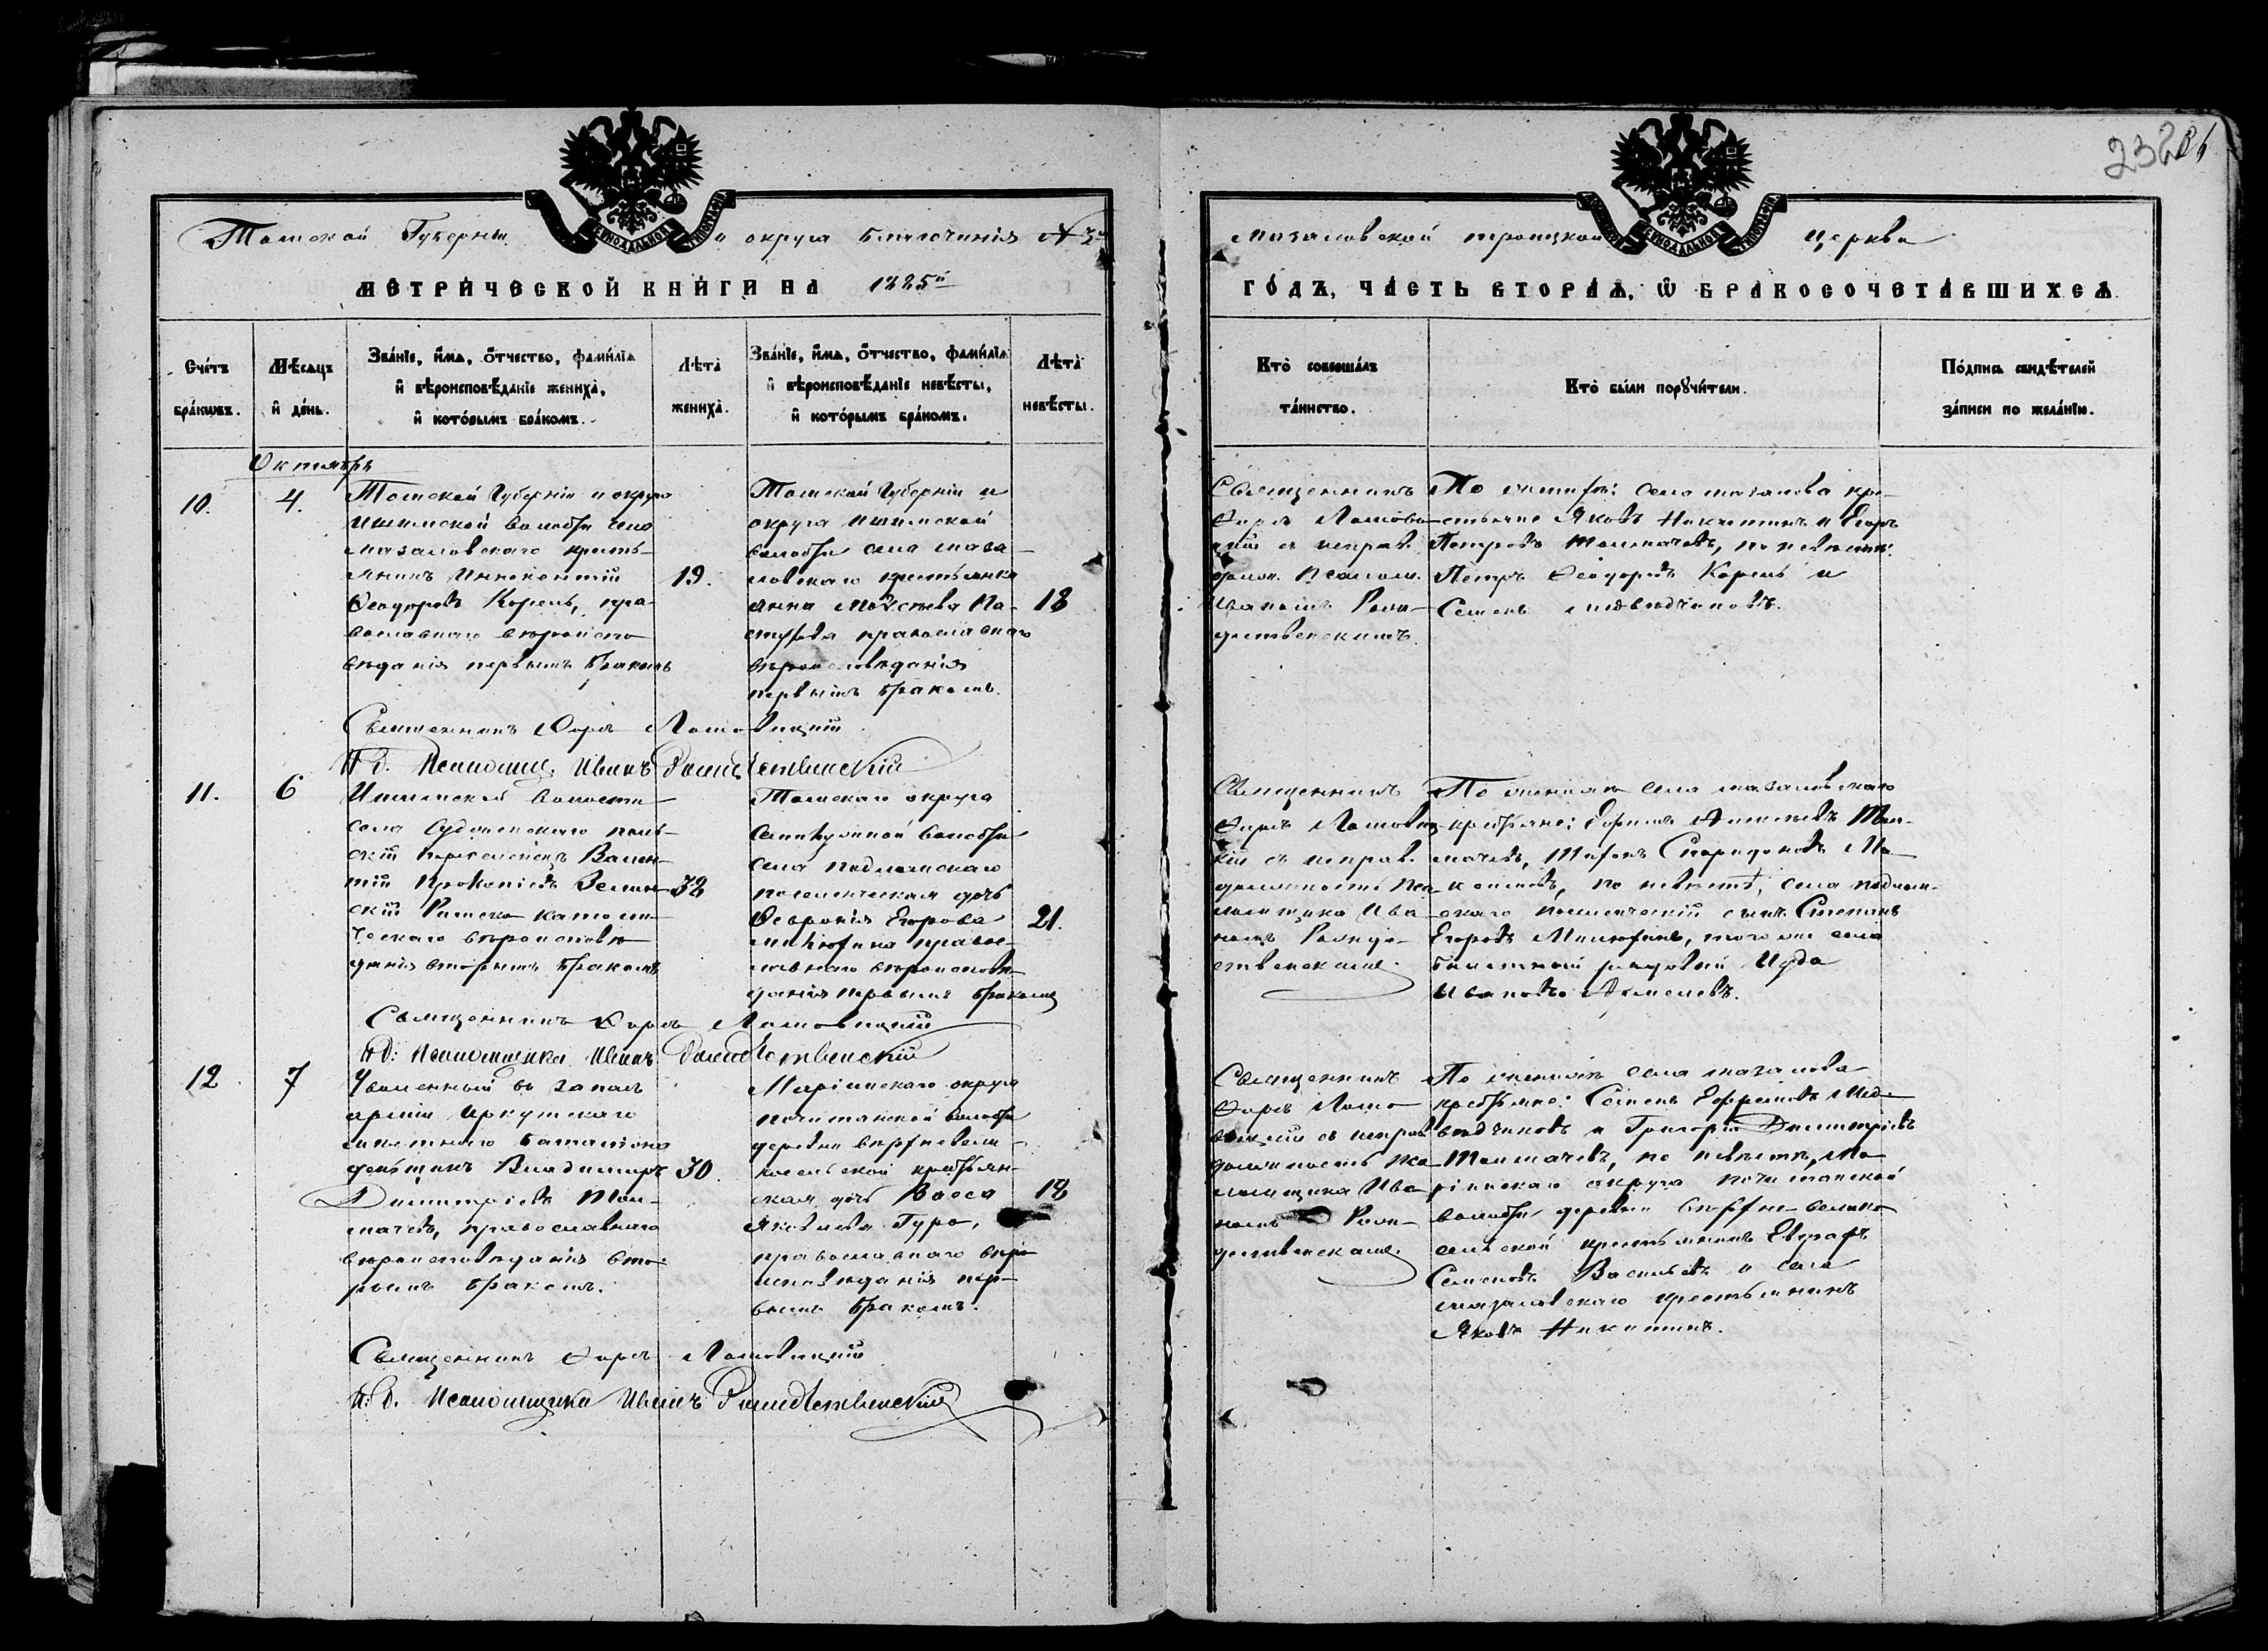 232
Томской Губерніи и округа благочинія № 3й
МЕТРИЧЕСКОЙ КНИГИ НА 1885й
Мазаловской троицкой церкви
ГОДЪ, ЧАСТЬ ВТОРАЯ, Ѡ БРАКОСОЧЕТАВШИХСЯ
Счетъ браковъ.
Мѣсяцъ и день.
Званіе, имя, отчество, фамилія
и вѣроисповѣданіе жениха,
и которымъ бракомъ.
Лѣта
жениха.
Званіе, имя, отчество, фамилія
и вѣроисповѣданіе невѣсты,
и которымъ бракомъ.
Лѣта
невѣсты.
Кто совершалъ
таинство.
Кто были поручители.
Подпись свидѣтелей
записи по желанію.
Октябрь
10.
4.
Томской Губерніи и округа
Ишимской волости села
Мазаловскаго кресть-
янинъ Иннокентій
Ѳеодоровъ Корень, пра-
вославнаго вѣроиспо-
вѣданія первымъ бракомъ
19.
Томской Губерніи и
округа Ишимской
волости села Маза-
ловскаго крестьянка
Анна
православнаго
вѣроисповѣданія
первымъ бракомъ.
18
Священникъ
съ исправ.
должн. Псалом.
Иваномъ Рож-
дественскимъ.
По женихѣ: села Мазалова кре-
стьяне Яковъ Никитинъ и Егоръ
Петровъ Толмачевъ, по невѣстѣ:
Петръ Ѳеодоровъ Корень и
Семенъ Медвѣдчиковъ.
Священникъ
И. д. Псаломщ. Иванъ Рождественскій
11.
6
Ишимской волости
села поль-
скій переселенецъ Вален-
тій Прокопіевъ
Римско-католи-
ческаго вѣроисповѣ-
данія вторымъ бракомъ
32
Томскаго округа
Семилужной волости
села
поселенческая дочь
Ѳевронія Егорова
Милютина правос-
лавнаго вѣроисповѣ-
данія первымъ бракомъ
21.
Священникъ
съ исправ.
должность Пса-
ломщика Ива-
номъ Рожде-
ственскимъ.
По женихѣ села Мазаловскаго
крестьяне: Алексѣевъ Тол-
мачевъ, Спиридоновъ
по невѣстѣ, села
поселенческій сынъ Степанъ
Егоровъ Милютинъ, того же села
рядовой Иуда
Ивановъ
Священникъ
И. д. Псаломщика Иванъ Рождественскій
12.
7
Уволенный въ запасъ
арміи Иркутскаго
баталіона
деньщикъ Владимиръ
Димитріевъ Тол-
мачевъ, православнаго
вѣроисповѣданія вто-
рымъ бракомъ.
30.
Маріинскаго округа
Почитанской волости
деревни
крестьян-
ская дочь Васса
Яковлева Гуро,
православнаго вѣро-
исповѣданія пер-
вымъ бракомъ.
18
Священникъ
съ исправ
должность Пса-
ломщика Ива-
номъ Рож-
дественскимъ.
По женихѣ села Мазалова
крестьяне: Семенъ Ефремовъ Мед-
вѣдчиковъ и Григорій Димитріевъ
Толмачевъ, по невѣстѣ, Ма-
ріинскаго округа Почитанской
волости деревни
крестьянинъ Евграфъ
Семеновъ Васильевъ и села
Мазаловскаго крестьянинъ
Яковъ Никитинъ.
Священникъ
И. д. Псаломщика Иванъ Рождественскій